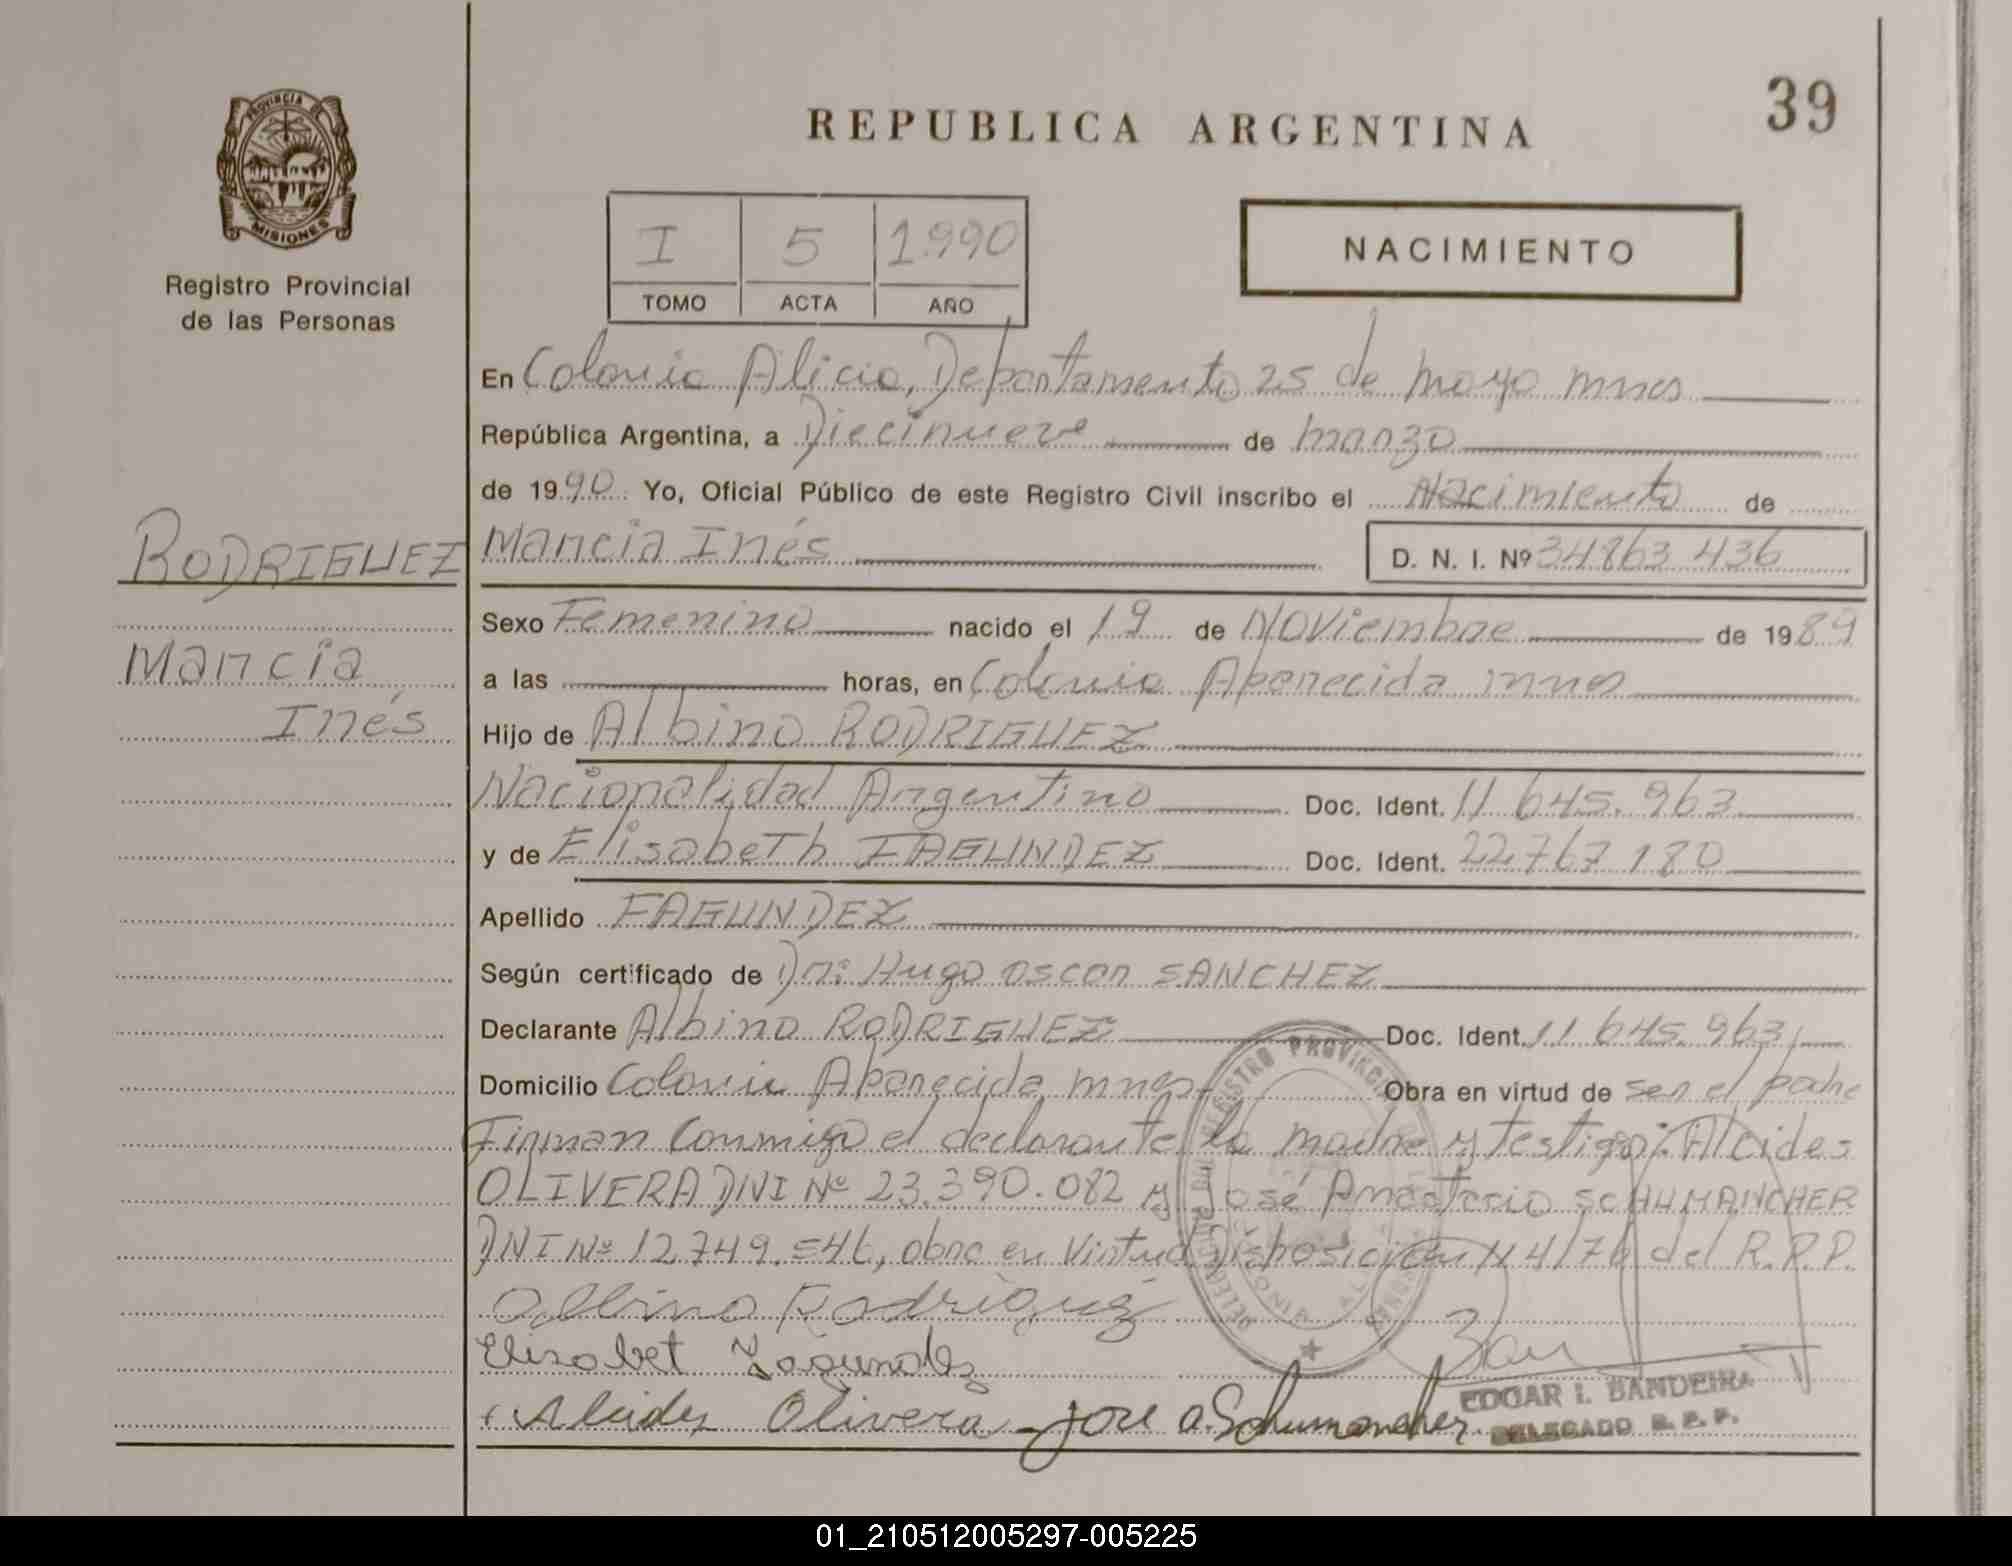 39
REPUBLICA ARGENTINA
PROVINCIA
MISIONES
Registro Provincial
de las Personas
I 5 1.990
TOMO ACTA AÑO
NACIMIENTO
En Colonia Alicia, Departamento 25 de mayo mnes
República Argentina, a Diecinueve de marzo
de 1990. Yo, Oficial Público de este Registro Civil inscribo el Nacimiento de
RODRIGUEZ
Marcia Inés
Marcia Inés D. N. I. Nº 34863 436
Sexo Femenino nacido el 19 de Noviembre de 1989
a las horas, en Colonia Aparecida mnes
Hijo de Albino RODRIGUEZ
Nacionalidad Argentino Doc. Ident. 11.645.963
y de Elisabeth FAGUNDEZ Doc. Ident. 22.767.180
Apellido FAGUNDEZ
Según certificado de Dr: Hugo oscar SANCHEZ
Declarante Albino RODRIGUEZ Doc. Ident. 11.645.963
Domicilio Colonia Aparecida mnes Obra en virtud de ser el padre
Firman Conmigo el declarante la madre y testigo: Alcides
OLIVERA DNI Nº 23.390.082 y José SCHUMANCHER
DNI Nº 12.749.546, obra en Virtud Disposición 114/76 del R.P.P.
Albino Rodriguez
Elisabet Fagundez
Alcides Olivera - Jose a. Schumancher
EDGAR I. BANDEIRA
DELEGADO R. P. P.
01_210512005297-005225